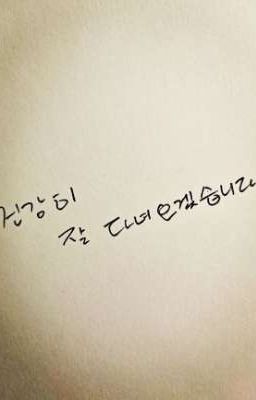 건강히
잘 다녀오겠습니다